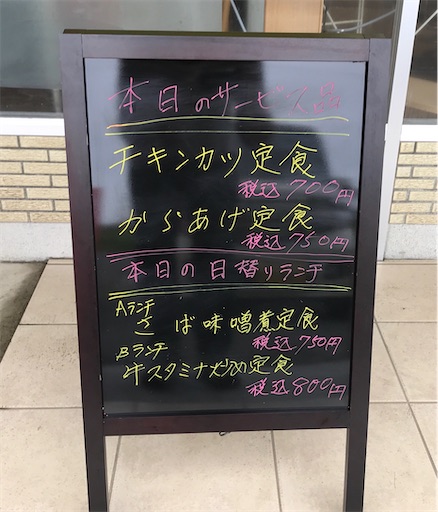 本日のサービス品
チキンカツ定食
税込700円
からあげ定食
税込750円
本日の日替りランチ
Aランチ
さば味噌煮定食
税込750円
Bランチ
牛スタミナ炒め定食
税込800円